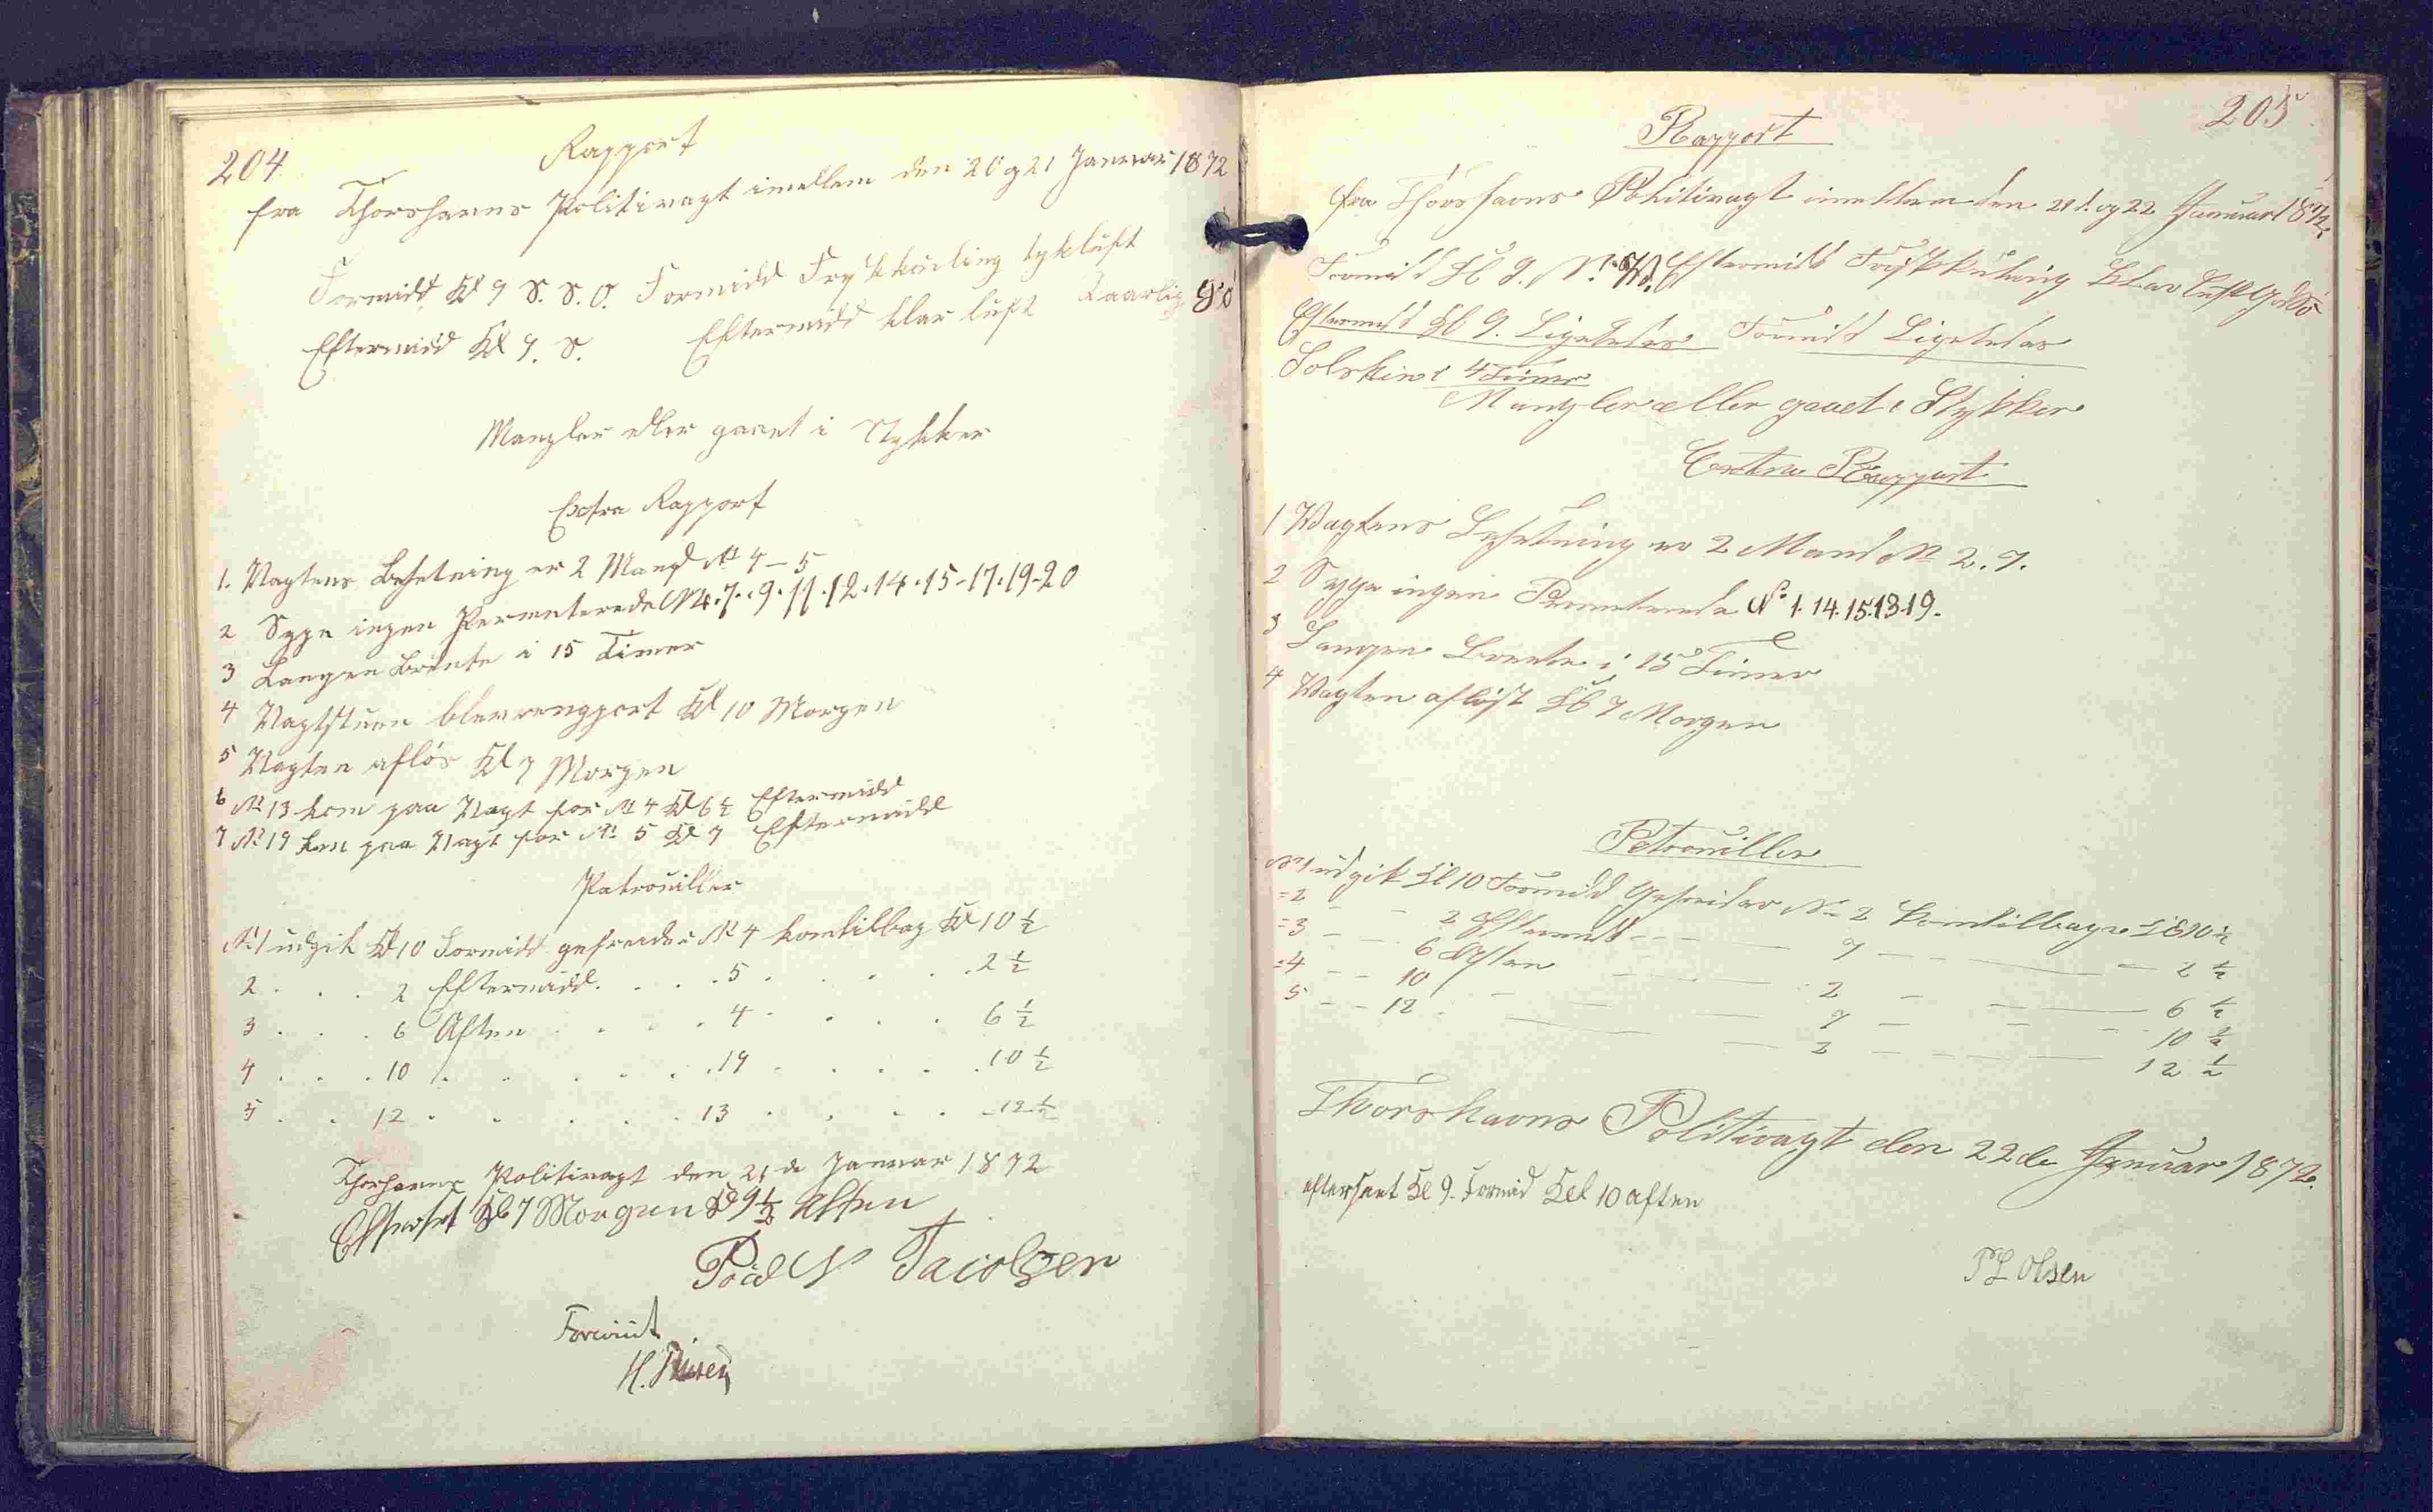 204
Rapport
fra Thorshavns Politivagt imellem den 20 g 21 Januar 1872
Formidd. Kl 9 S. S. O. Formidd Frykkuling tykluft
Eftermidd Kl 9. S. Eftermidd klar luft
Mangler eller gaaet i Stykker
Extra Rapport
1. Vagtens Besetning er 2 Mand No 4-5
2 Syge ingen Permenterede No 4. 7. 9. 11. 12. 14. 15-17. 19-20
3 Langen Brente i 15 Timer
4 Vagtstuen blev rengjort Kl 10 Morgen
5 Vagten afløs Kl 7 Morgen
6 No 13 kom paa Vagt for No 4 Kl 6 1/2 Eftermidd
7 No 19 kom paa Vagt for No 5 Kl 7 Eftermidd
Patrouiller
No 1 udgik Kl 10 Formidd gefreider No 4 kom tilbag Kl 10 1/2
2 . . . 2 Eftermidd. . . . 5 . . . . 2 1/2
3 . . . 6 Aften . . . . 4 . . . . 6 1/2
4 . . . 10 . . . . . 19 . . . . 10 1/2
5 . . 12 . . . . . 13 . . . . 12 1/2
Thorshavns Politivagt den 21 de Januar 1872
Efterset Kl 7 Morgen Kl 9 1/2 Aften
Jacobsen
205
Rapport
fra Thorshavns Politivagt imellem den 21d. og 22 Januar 1872.
Formidd Kl 9. N. Eftermidd Friskkuling Klar Luft
Eftermidd Kl 9. Ligeledes Formidd Ligeledes
Solskin i 4 Timer
Mangler eller gaaet i Stykker
Extra Rapport
1 Vagtens Besetning er 2 Mand No 2. 7.
2 Syge ingen Permenterede No 1. 14. 15. 13. 19.
3 Langen Brente i 15 Timer
4 Vagten afløst Kl 7 Morgen
Petrouiller
No 1 udgik Kl 10 Formidd Gefreider No 2 kom tilbage Kl 10 1/2
=2 - - 2 Eftermidd - - - 7 - - - 2 1/2
=3 - - 6 Aften - - - 2 - - - 6 1/2
=4 - - 10 - - - 7 - - - 10 1/2
5 - - 12 - - - 2 - - - 12 1/2
Thorshavns Politivagt den 22 de Januar 1872.
efterseet Kl 9. Formid Kl 10 aften
Olsen